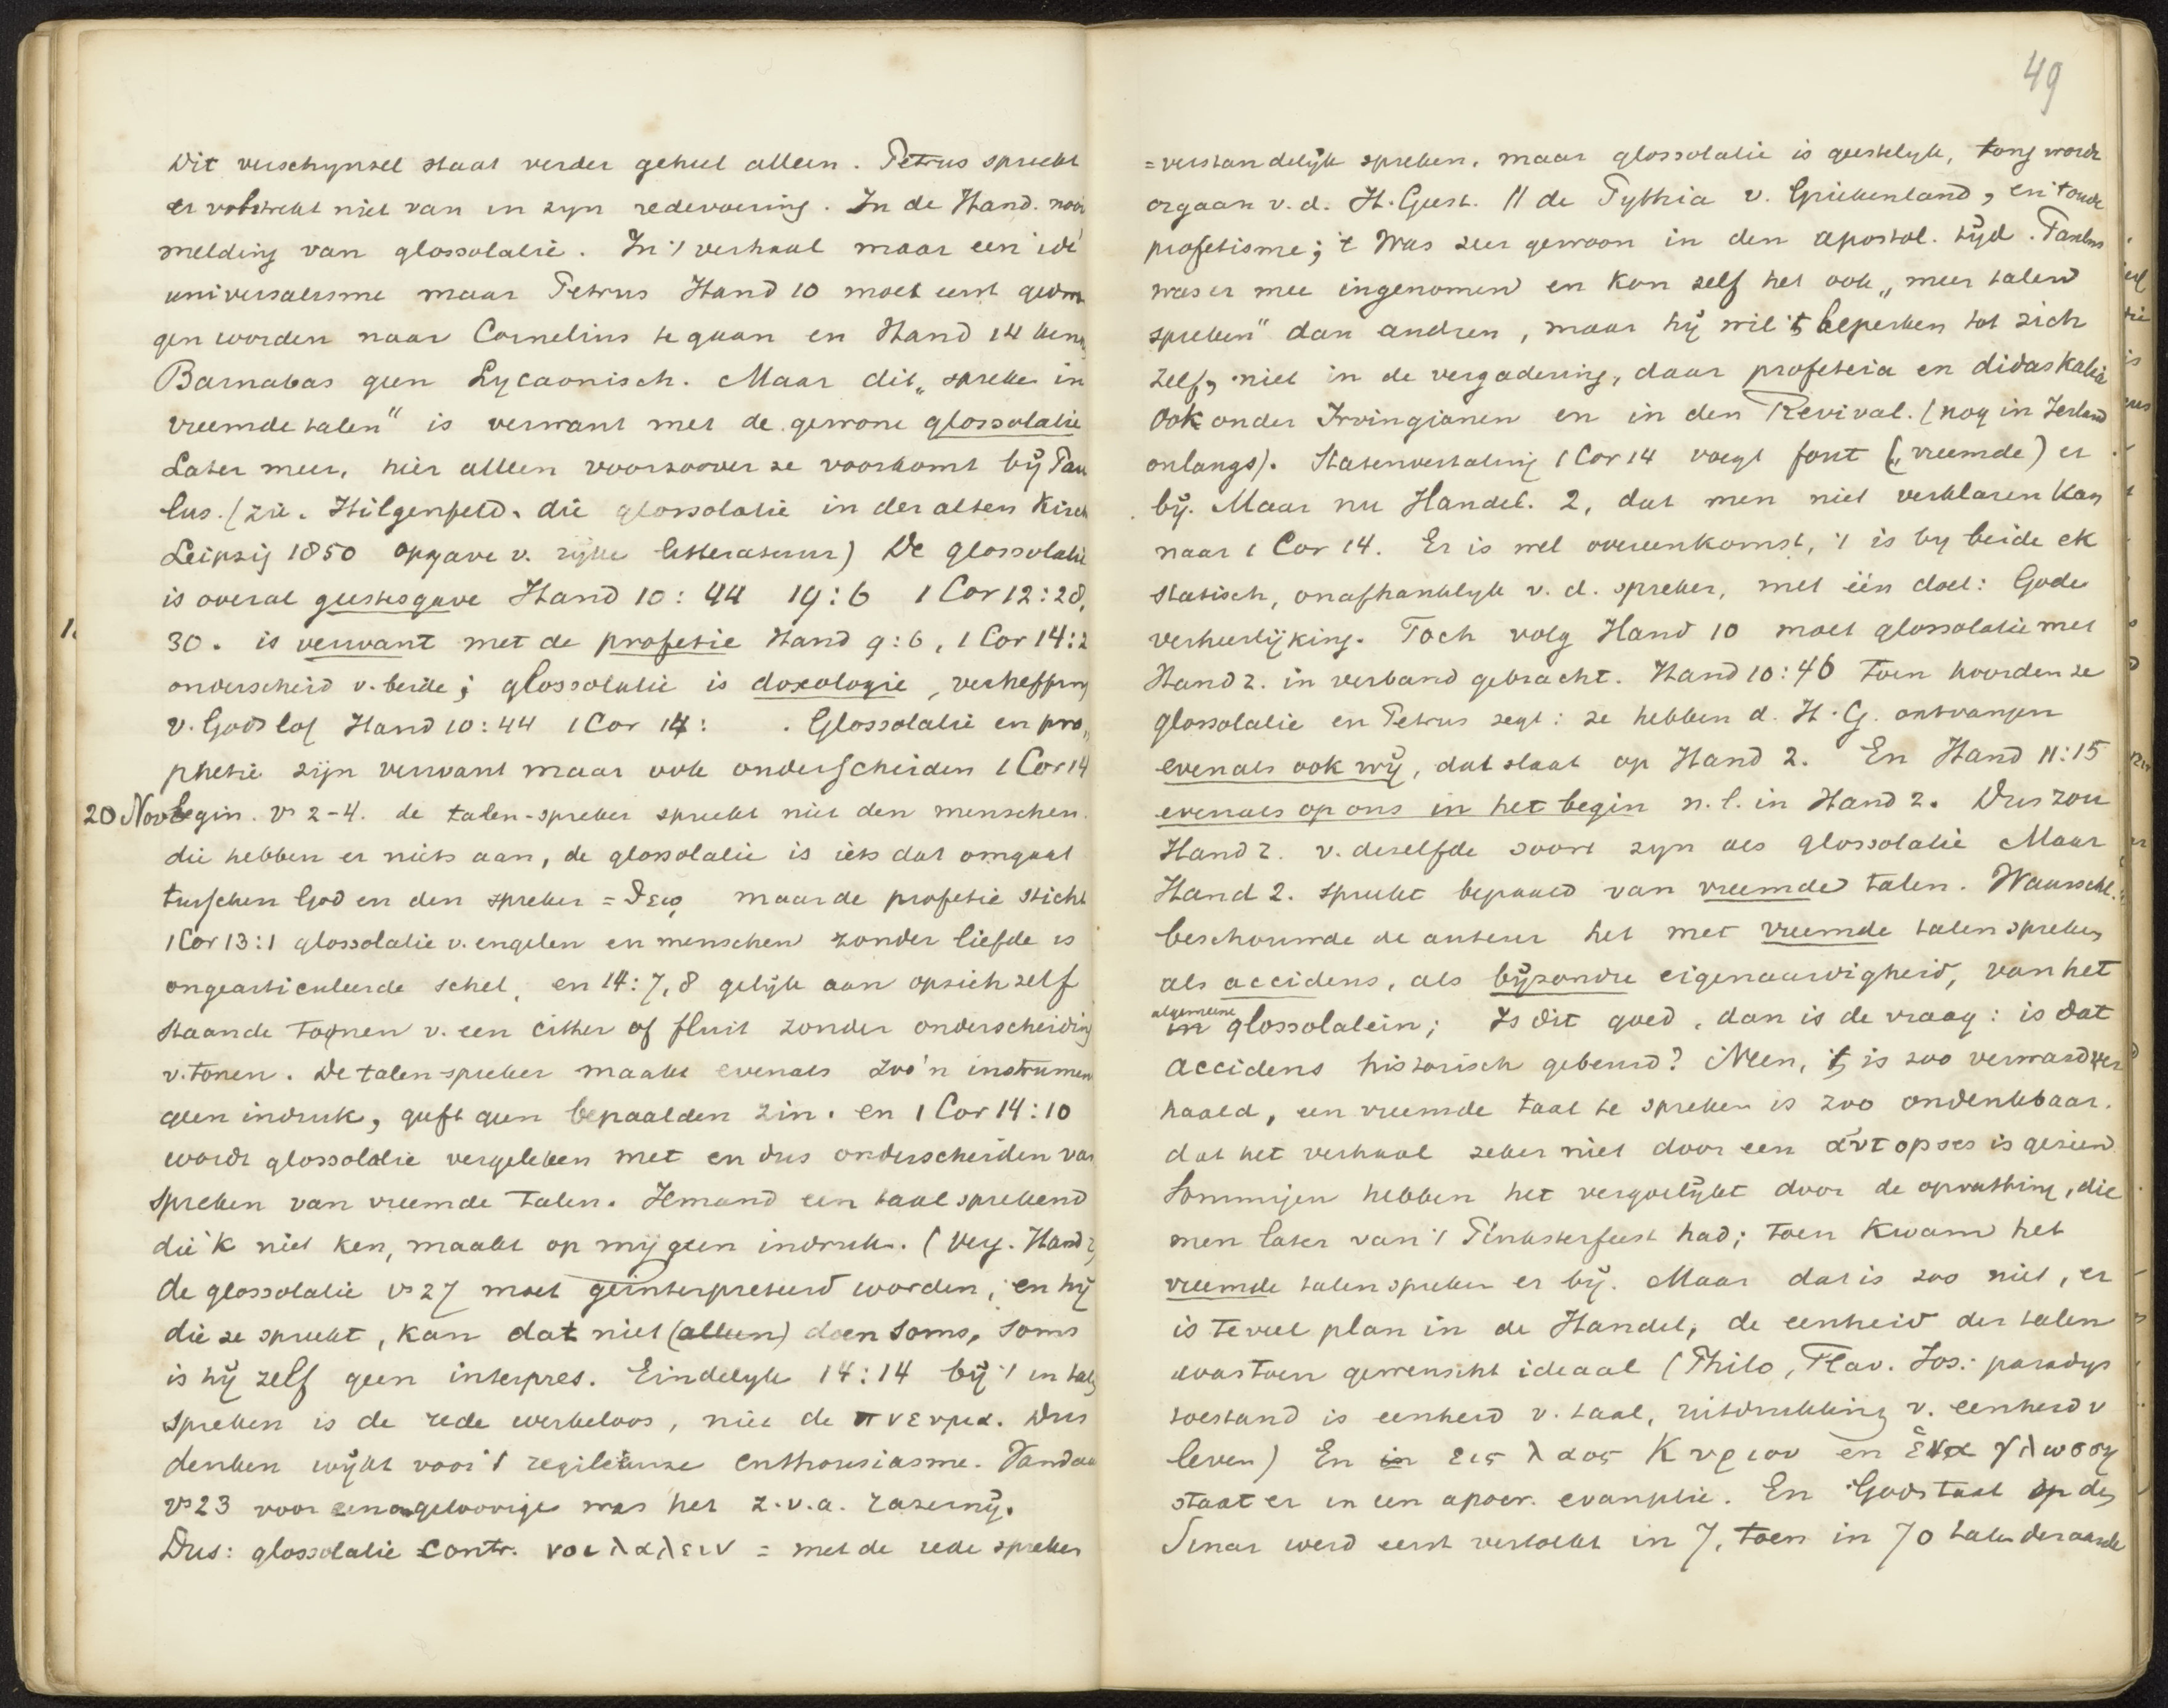 Dit verschynsel staat verder geheel alleen. Petrus spreekt
er volstrekt niet van in zyn redevoering. In de Hand. nooi
melding van glossolalie. In 't verhaal maar een idé
universalisme maar Petrus Hand 10 moet eerst gedron
gen worden naar Cornelius te gaan en Hand 14 kenn
Barnabas geen Lycaonisch. Maar dit „spreken in
vreemde talen" is verwant met de gewone glossolalie
Later meer, hier alleen voorzoover ze voorkomt bÿ Pau
lus. (zie. Hilgenfeld. die glossolalie in der alten Kirch
Leipzig 1850 opgave v. rijke litteratuur) De glossolalie
is overal geestesgave Hand 10:44 19:6 1 Cor 12:28,
30. is verwant met de profetie Hand 9:6, 1 Cor 14:2
onderscheid v. beide; glossolalie is doxologie, verheffing
v. Gods lof Hand 10:44 1 Cor 14: . Glossolalie en pro„
phetie zijn verwant maar ook onderscheiden 1 Cor 14
20 Nov begin. vs 2-4. de talen-spreker spreekt niet den menschen
die hebben er niets aan, de glossolalie is iets dat omgaat
tusschen God en den spreker = θεω maar de profetie sticht
1 Cor 13:1 glossolalie v. engelen en menschen zonder liefde is
ongearticuleerde schel, en 14:7,8 gelijk aan opzichzelf
staande toonen v. een cither of fluit zonder onderscheiding
v. tonen. De talen-spreker maakt evenals zoo'n instrumen
geen indruk, geeft geen bepaalden zin. en 1 Cor 14:10
wordt glossolalie vergeleken met en dus onderscheiden van
spreken van vreemde talen. Iemand een taal sprekend
die 'k niet ken, maakt op mij geen indruk. (Verg. Hand 2)
de glossolalie vs 27 moet geïnterpreteerd worden, en hÿ
die ze spreekt, kan dat niet (alleen) doen soms, soms
is hÿ zelf geen interpres. Eindelyk 14:14 bÿ 't in talen
spreken is de rede werkeloos, niet de πνευμα. Dus
denken wÿkt voor 't regilieuze enthousiasme. Vandaar
vs 23 voor een ongeloovige was het z.v.a. razernÿ.
Dus: glossolalie contr. νοι λαλειν = met de rede spreken
49
= verstandelÿk spreken, maar glossolalie is geestelyk, tong wordt
orgaan v.d. H. Geest. // de Pythia v. Griekenland, en 't oude
profetisme; 't Was zeer gewoon in den apostol. tÿd. Paulus
was er mee ingenomen en kon zelf het ook „meer talen
spreken" dan andren, maar hÿ wil 't beperken tot zich
zelf, niet in de vergadering, daar profeteia en didaskalia
Ook onder Irvingianen en in den Revival. (nog in Ierland
onlangs). Statenvertaling 1 Cor 14 voegt fout („vreemde) er
bÿ. Maar nu Handel. 2, dat men niet verklaren kan
naar 1 Cor 14. Er is wel overeenkomst, 't is by beide ek
statisch, onafhanklyk v.d. spreker, met één doel: Gods
verheerlijking. Toch volg Hand 10 moet glossolalie met
Hand 2. in verband gebracht. Hand 10:46 Toen hoorden ze
glossolalie en Petrus zegt: ze hebben d. H.G. ontvangen
evenals ook wÿ, dat slaat op Hand 2. En Hand 11:15
evenals op ons in het begin n.l. in Hand 2. Dus zou
Hand 2. v. dezelfde soort zyn als glossolalie Maar
Hand 2. spreekt bepaald van vreemde talen. Waarschl.
beschouwde de auteur het met vreemde talen spreken
als accidens, als bÿzondre eigenaardigheid, van het
algemeene
in glossolalein; Is dit goed, dan is de vraag: is dat
accidens historisch gebeurd? Neen, 't is zoo verward ver
haald, een vreemde taal te spreken is zoo ondenkbaar.
dat het verhaal zeker niet door een αυτοpses is gezien
Sommigen hebben het vergoelijkt door de opvatting, die
men later van 't Pinksterfeest had; toen kwam het
vreemde talen spreken er bÿ. Maar dat is zoo niet, er
is teveel plan in de Handel; de eenheid der talen
was toen gewenscht ideaal (Philo, Flav. Jos.: paradys
toestand is eenheid v. taal, uitdrukking v. eenheid v
leven) En in εις λαος Κυριου en ενα γλωσση
staat er in een apocr. evangelie. En Gods taal op den
Sinai werd eerst vertolkt in 7, toen in 70 talen der aarde